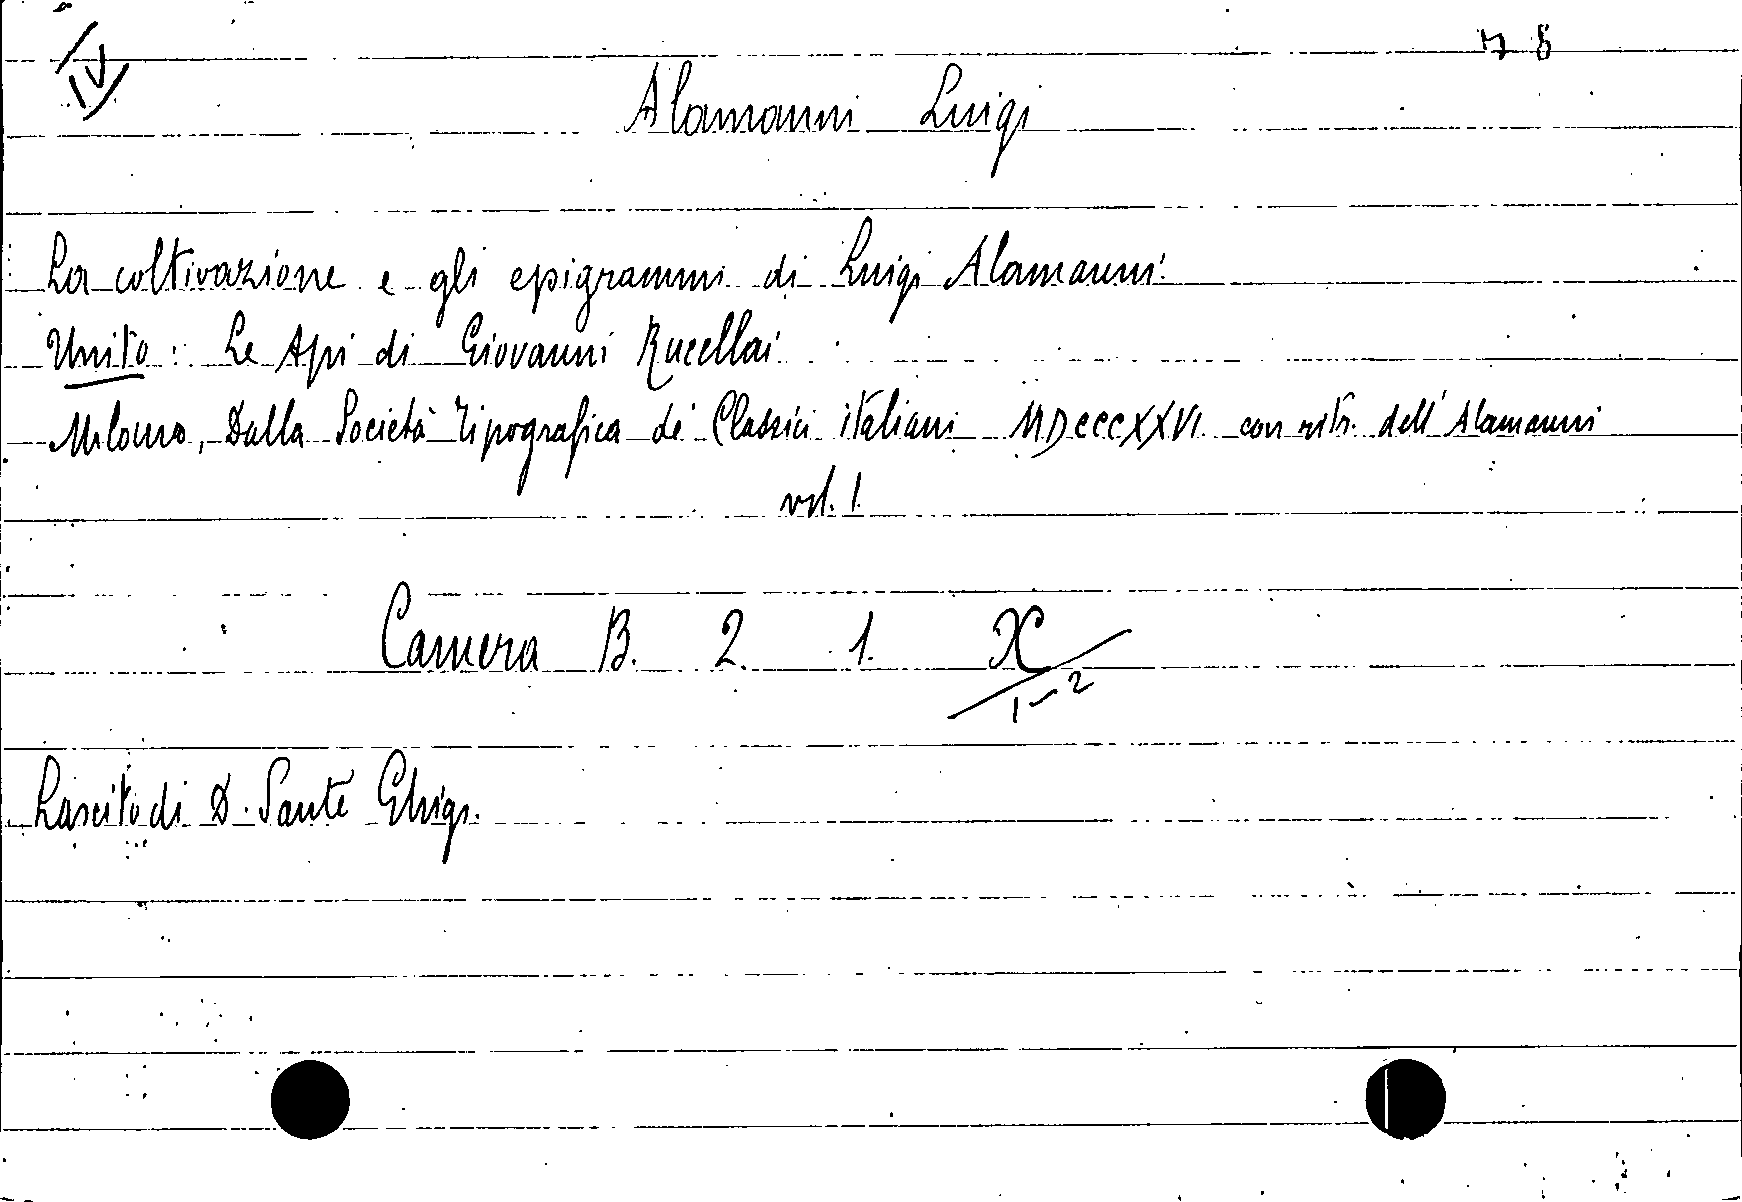 IV
78
Alamanni Luigi
La coltivazione e gli epigrammi di Luigi Alamanni.
Unito: Le Api di Giovanni Rucellai
Milano, Dalla Società Tipografica de' Classici italiani MDCCCXXVI con ritr. dell'Alamanni
vol. 1.
Camera B. 2. 1. X
1-2
Lascito di D. Sante Ghigi.